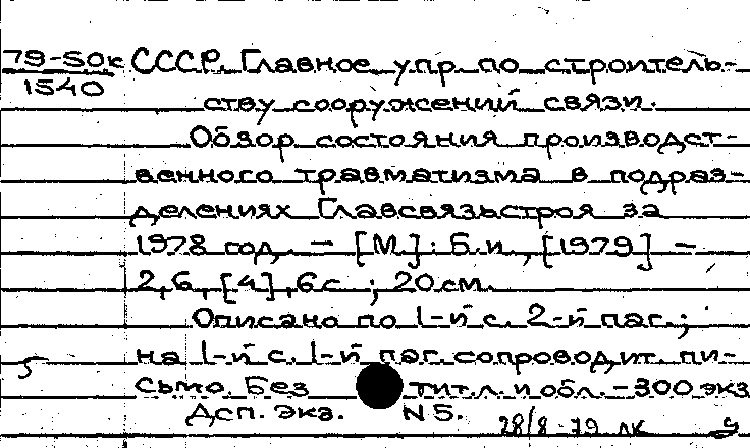 79-50к СССР. Главное упр. по строитель-
1540
ству сооружений связи.
Обзор состояния производст-
венного травматизма в подраз-
делениях Главсвязьстроя за
1978 год. — [М.]: Б.и., [1979] —
2, 6, [4], 6 с. ; 20 см.
Описано по 1-й с. 2-й паг.;
на 1-й с. 1-й паг. сопроводит. пи-
5
сьмо. Без тит. л. и обл. – 300 экз
Дсп. Экз. N 5.
28/8-79 ЛК